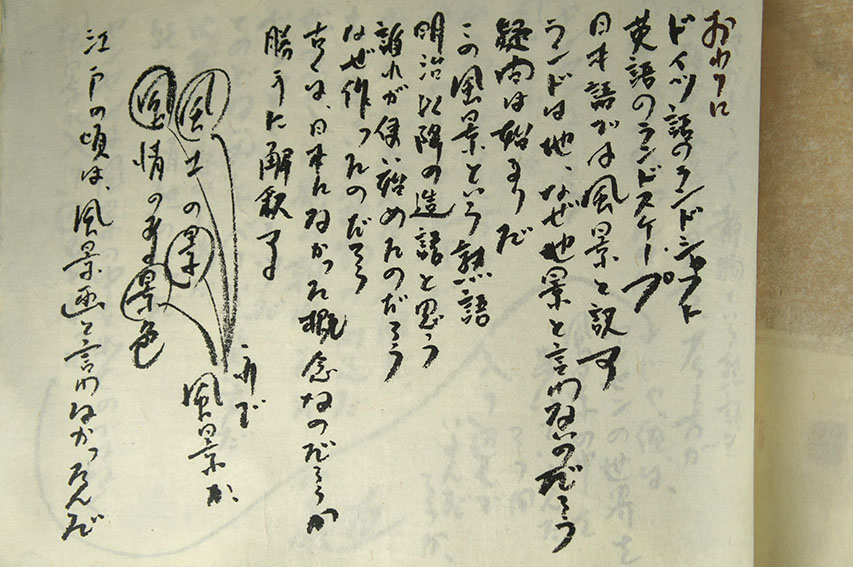 おわりに
ドイツ語のランドシャフト
英語のランドスケープ
日本語では風景と訳す
ランドは地、なぜ地景と言わないのだろう
疑問は始まりだ
この風景という熟語
明治以降の造語と思う
誰れが使い始めたのだろう
なぜ作ったのだろう
古くは、日本になかった概念なのだろうか
勝手に解釈する
風土の景
風情の有景色
two